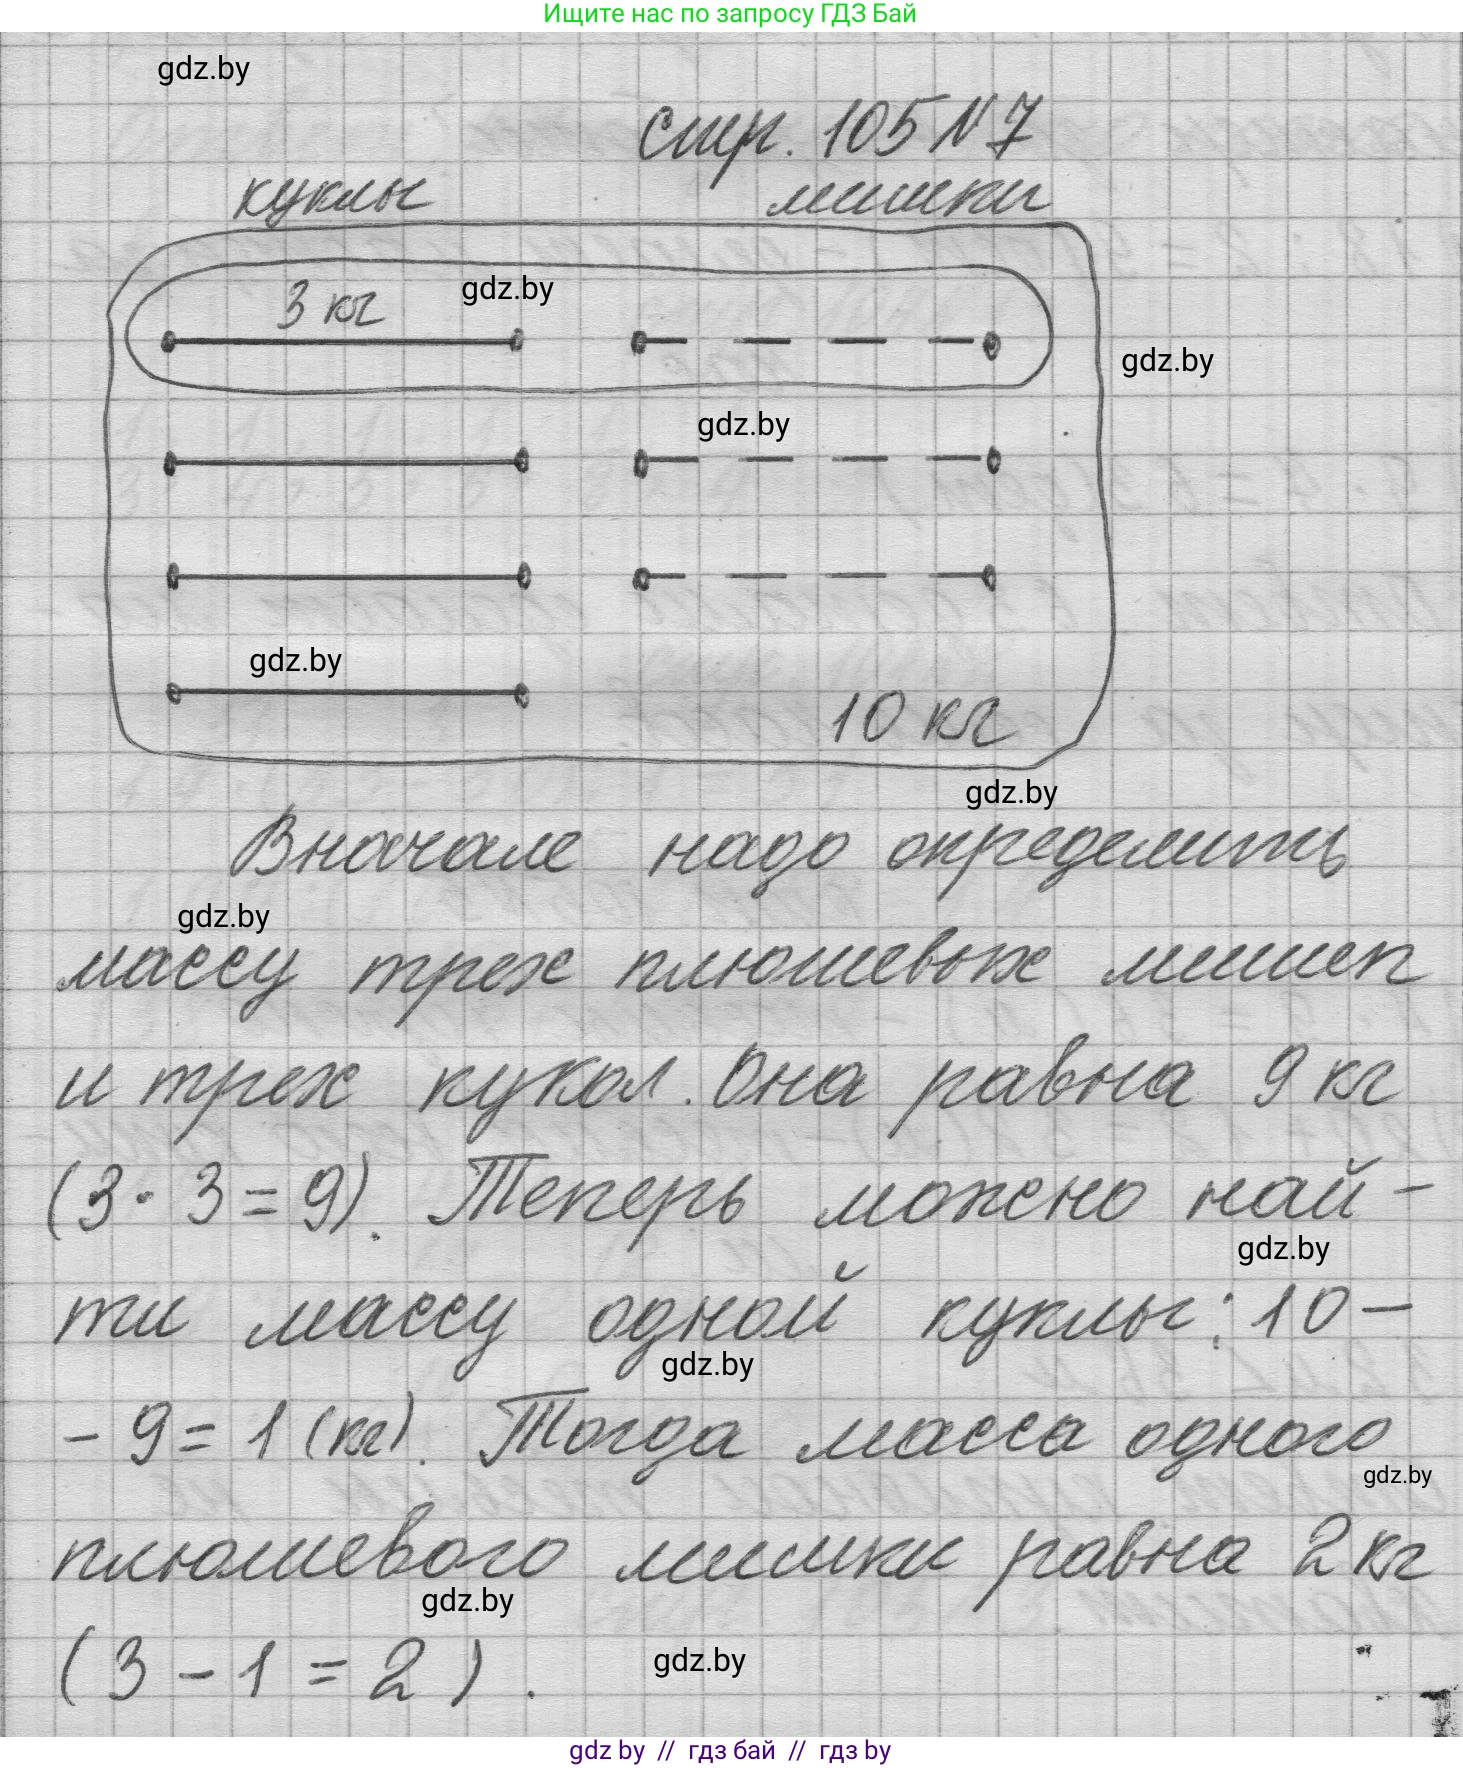 Ищите нас по запросу ГДЗ Бай
gdz.by
стр. 105 N 7
куклы мишки
3 кг
gdz.by
gdz.by
gdz.by
gdz.by
10 кг
gdz.by
Вначале надо определить
gdz.by
массу трех плюшевых мишек
и трех кукол. Она равна 9 кг
(3 · 3 = 9). Теперь можно най-
gdz.by
ти массу одной куклы: 10 -
gdz.by
- 9 = 1 (кг). Тогда масса одного
gdz.by
плюшевого мишки равна 2 кг
gdz.by
(3 - 1 = 2).
gdz.by
gdz by // гдз бай // гдз by